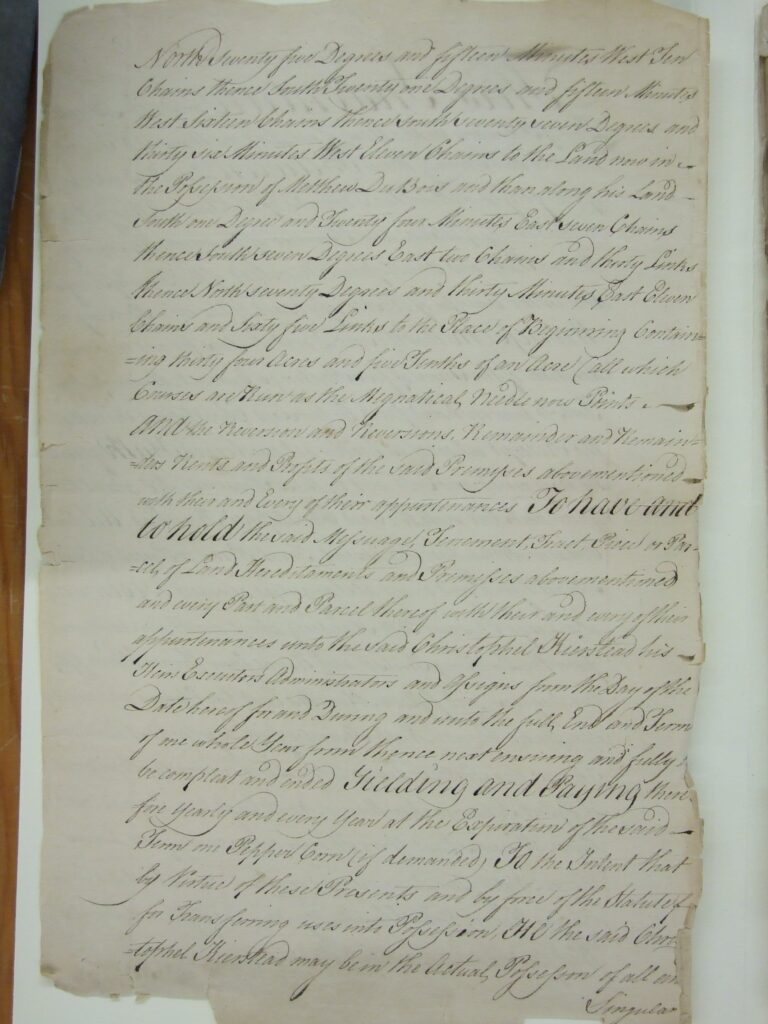 North Seventy five Degrees and fifteen Minutes West Ten
Chains thence South Twenty one Degrees and fifteen Minutes
West Sixteen Chains thence South seventy seven Degrees and
thirty six Minutes West Eleven Chains to the Land now in
the Possession of Matthew DuBois and than along his Land
South one Degree and Twenty four Minutes East seven Chains
thence South seven Degrees East two Chains and thirty Links
thence North seventy Degrees and thirty Minutes East Eleven
Chains and Sixty five Links to the Place of Beginning Contain=
=ing thirty four Acres and five Tenths of an Acre (all which
Courses are Run as the Magnatical Needle now Points
And the Reversion and Reversions, Remainder and Remain=
=ders Rents and Profits of the said Premisses abovementioned
with their and Every of their appurtenances To have and
to hold the said Messuage, Tenement, Tract, Piece or Par=
=cel of Land Hereditaments and Premisses abovementioned
and every Part and Parcel thereof with their and every of their
appurtenances unto the said Christophel Kierstead his
Heirs Executors Administrators and Assigns from the Day of the
Date hereof for and During and unto the full End and Term
of one whole Year from thence next ensuing and fully
be compleat and ended Yielding and Paying there
fore Yearly and every Year at the Expiration of the said
Term one Pepper Corn (if demanded) To the Intent that
by Virtue of these Presents and by force of the Statute
for Transferring uses into Possession, He the said Chris
=tophel Kierstead may be in the Actual Possession of all an
Singular